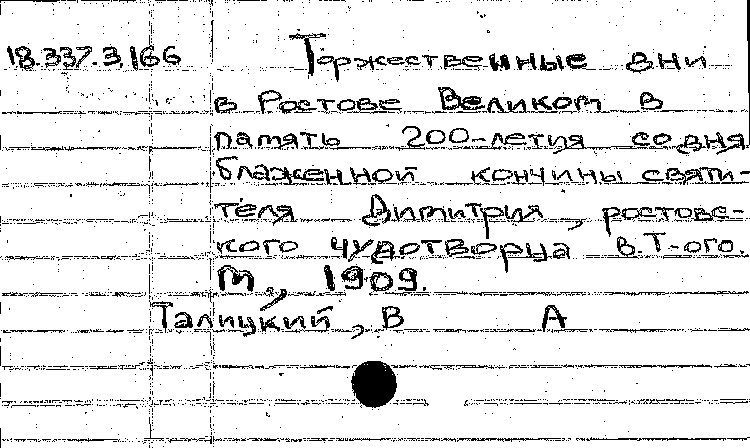 18.337.3.166 Торжественные дни
в Ростове Великом в
память 200-летия со дня
блаженной кончины святи-
теля Димитрия, ростовс-
кого чудотворца В.Т-ого.
М., 1909.
Талицкий, В А